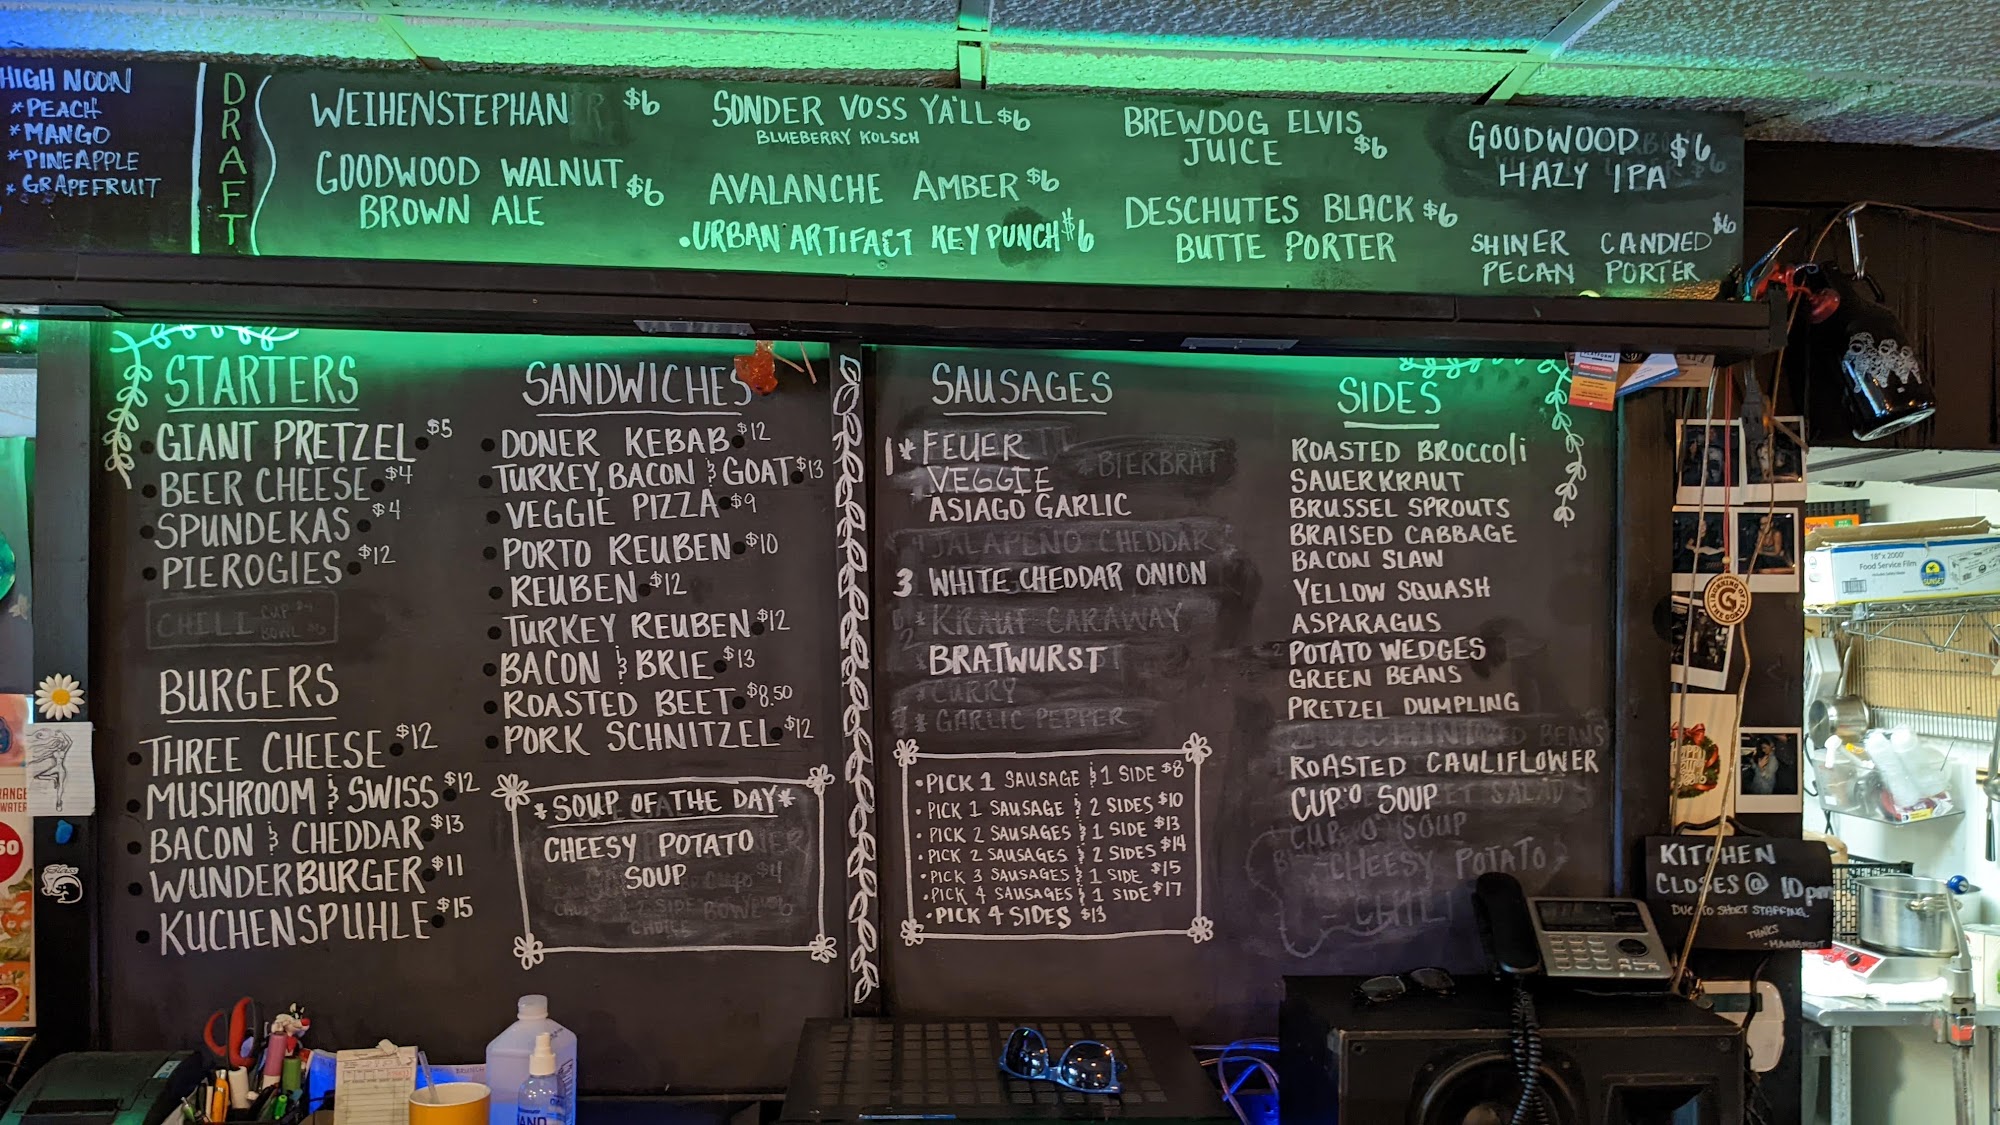 HIGH NOON
*PEACH
*MANGO
*PINEAPPLE
*GRAPEFRUIT
DRAFT
WEIHENSTEPHAN $6
GOODWOOD WALNUT $6
BROWN ALE
SONDER VOSS YA'LL $6
BLUEBERRY KOLSCH
AVALANCHE AMBER $6
•URBAN ARTIFACT KEY PUNCH $6
BREWDOG ELVIS
JUICE $6
DESCHUTES BLACK $6
BUTTE PORTER
GOODWOOD $6
HAZY IPA
SHINER CANDIED $6
PECAN PORTER
STARTERS
•GIANT PRETZEL •$5
•BEER CHEESE •$4
•SPUNDEKAS •$4
•PIEROGIES •$12
CHILI CUP $4
BOWL $6
BURGERS
•THREE CHEESE •$12
•MUSHROOM & SWISS •$12
•BACON & CHEDDAR •$13
•WUNDERBURGER •$11
•KUCHENSPUHLE •$15
SANDWICHES
•DONER KEBAB •$12
•TURKEY, BACON & GOAT •$13
•VEGGIE PIZZA •$9
•PORTO REUBEN •$10
•REUBEN •$12
•TURKEY REUBEN •$12
•BACON & BRIE •$13
•ROASTED BEET •$8.50
•PORK SCHNITZEL •$12
*SOUP OF THE DAY*
CHEESY POTATO
SOUP
SAUSAGES
1 * FEUER
VEGGIE
*BIERBRAT
ASIAGO GARLIC
JALAPENO CHEDDAR
3 WHITE CHEDDAR ONION
KRAUT CARAWAY
BRATWURST
*CURRY
* GARLIC PEPPER
•PICK 1 SAUSAGE & 1 SIDE $8
•PICK 1 SAUSAGE & 2 SIDES $10
•PICK 2 SAUSAGES & 1 SIDE $13
•PICK 2 SAUSAGES & 2 SIDES $14
•PICK 3 SAUSAGES & 1 SIDE $15
•PICK 4 SAUSAGES & 1 SIDE $17
•PICK 4 SIDES $13
SIDES
ROASTED BROCCOLI
SAUERKRAUT
BRUSSEL SPROUTS
BRAISED CABBAGE
BACON SLAW
YELLOW SQUASH
ASPARAGUS
POTATO WEDGES
GREEN BEANS
PRETZEL DUMPLING
ROASTED CAULIFLOWER
CUP'O SOUP
CUP O' SOUP
-CHEESY POTATO
-CHILI
KITCHEN
CLOSES @ 10pm
DUE TO SHORT STAFFING
THNKS
-MANAGMENT
18" x 2000'
Food Service Film